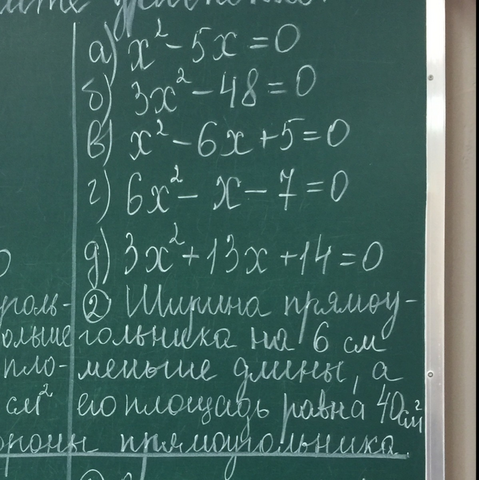 а) x² - 5x = 0
б) 3x² - 48 = 0
в) x² - 6x + 5 = 0
г) 6x² - x - 7 = 0
д) 3x² + 13x + 14 = 0
② Ширина прямоу-
гольника на 6 см
меньше длины, а
его площадь равна 40 см²
прямоугольника.